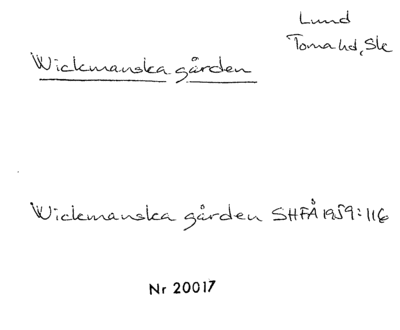 Lund
Torna hd, Ske
Wickmanska gården
Wickmanska gården SHFÅ 1959:116
Nr 20017